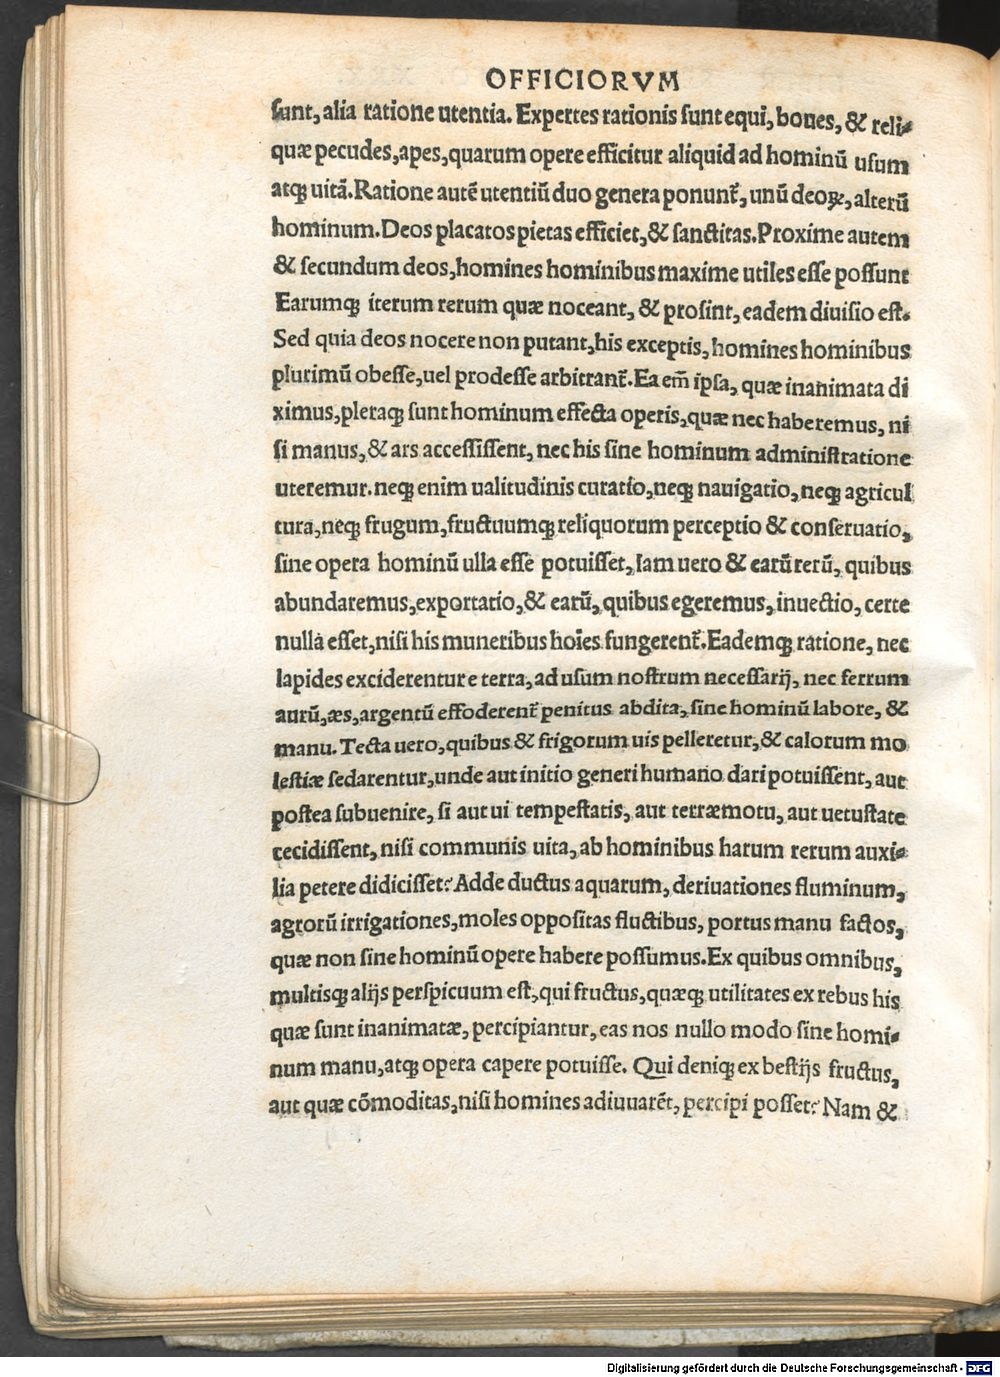 OFFICIORVM
sunt, alia ratione utentia. Expertes rationis sunt equi, boues, & reli-
quæ pecudes, apes, quarum opere efficitur aliquid ad hominũ usum
atqꝫ uitã. Ratione autẽ utentiũ duo genera ponunt᷑, unũ deoꝝ, alterũ
hominum. Deos placatos pietas efficiet, & sanctitas. Proxime autem
& secundum deos, homines hominibus maxime utiles esse possunt
Earumqꝫ iterum rerum quæ noceant, & prosint, eadem diuisio est.
Sed quia deos nocere non putant, his exceptis, homines hominibus
plurimũ obesse, uel prodesse arbitrant᷑. Ea em̃ ipsa, quæ inanimata di
ximus, pleraqꝫ sunt hominum effecta operis, quæ nec haberemus, ni
si manus, & ars accessissent, nec his sine hominum administratione
uteremur. neqꝫ enim ualitudinis curatio, neqꝫ nauigatio, neqꝫ agricul
tura, neqꝫ frugum, fructuumqꝫ reliquorum perceptio & conseruatio,
sine opera hominũ ulla esse potuisset, Iam uero & earũ rerũ, quibus
abundaremus, exportatio, & earũ, quibus egeremus, inuectio, certe
nulla esset, nisi his muneribus hoĩes fungerent᷑. Eademqꝫ ratione, nec
lapides exciderentur e terra, ad usum nostrum necessarij, nec ferrum
aurũ, æs, argentũ effoderent᷑ penitus abdita, sine hominũ labore, &
manu. Tecta uero, quibus & frigorum uis pelleretur, & calorum mo
lestiæ sedarentur, unde aut initio generi humano dari potuissent, aut
postea subuenire, si aut ui tempestatis, aut terræmotu, aut uetustate
cecidissent, nisi communis uita, ab hominibus harum rerum auxi-
lia petere didicisset? Adde ductus aquarum, deriuationes fluminum,
agrorũ irrigationes, moles oppositas fluctibus, portus manu factos,
quæ non sine hominũ opere habere possumus. Ex quibus omnibus,
multisqꝫ alijs perspicuum est, qui fructus, quæqꝫ utilitates ex rebus his
quæ sunt inanimatæ, percipiantur, eas nos nullo modo sine homi-
num manu, atqꝫ opera capere potuisse. Qui deniqꝫ ex bestijs fructus,
aut quæ cõmoditas, nisi homines adiuuarẽt, percipi posset? Nam &
Digitalisierung gefördert durch die Deutsche Forschungsgemeinschaft - DFG